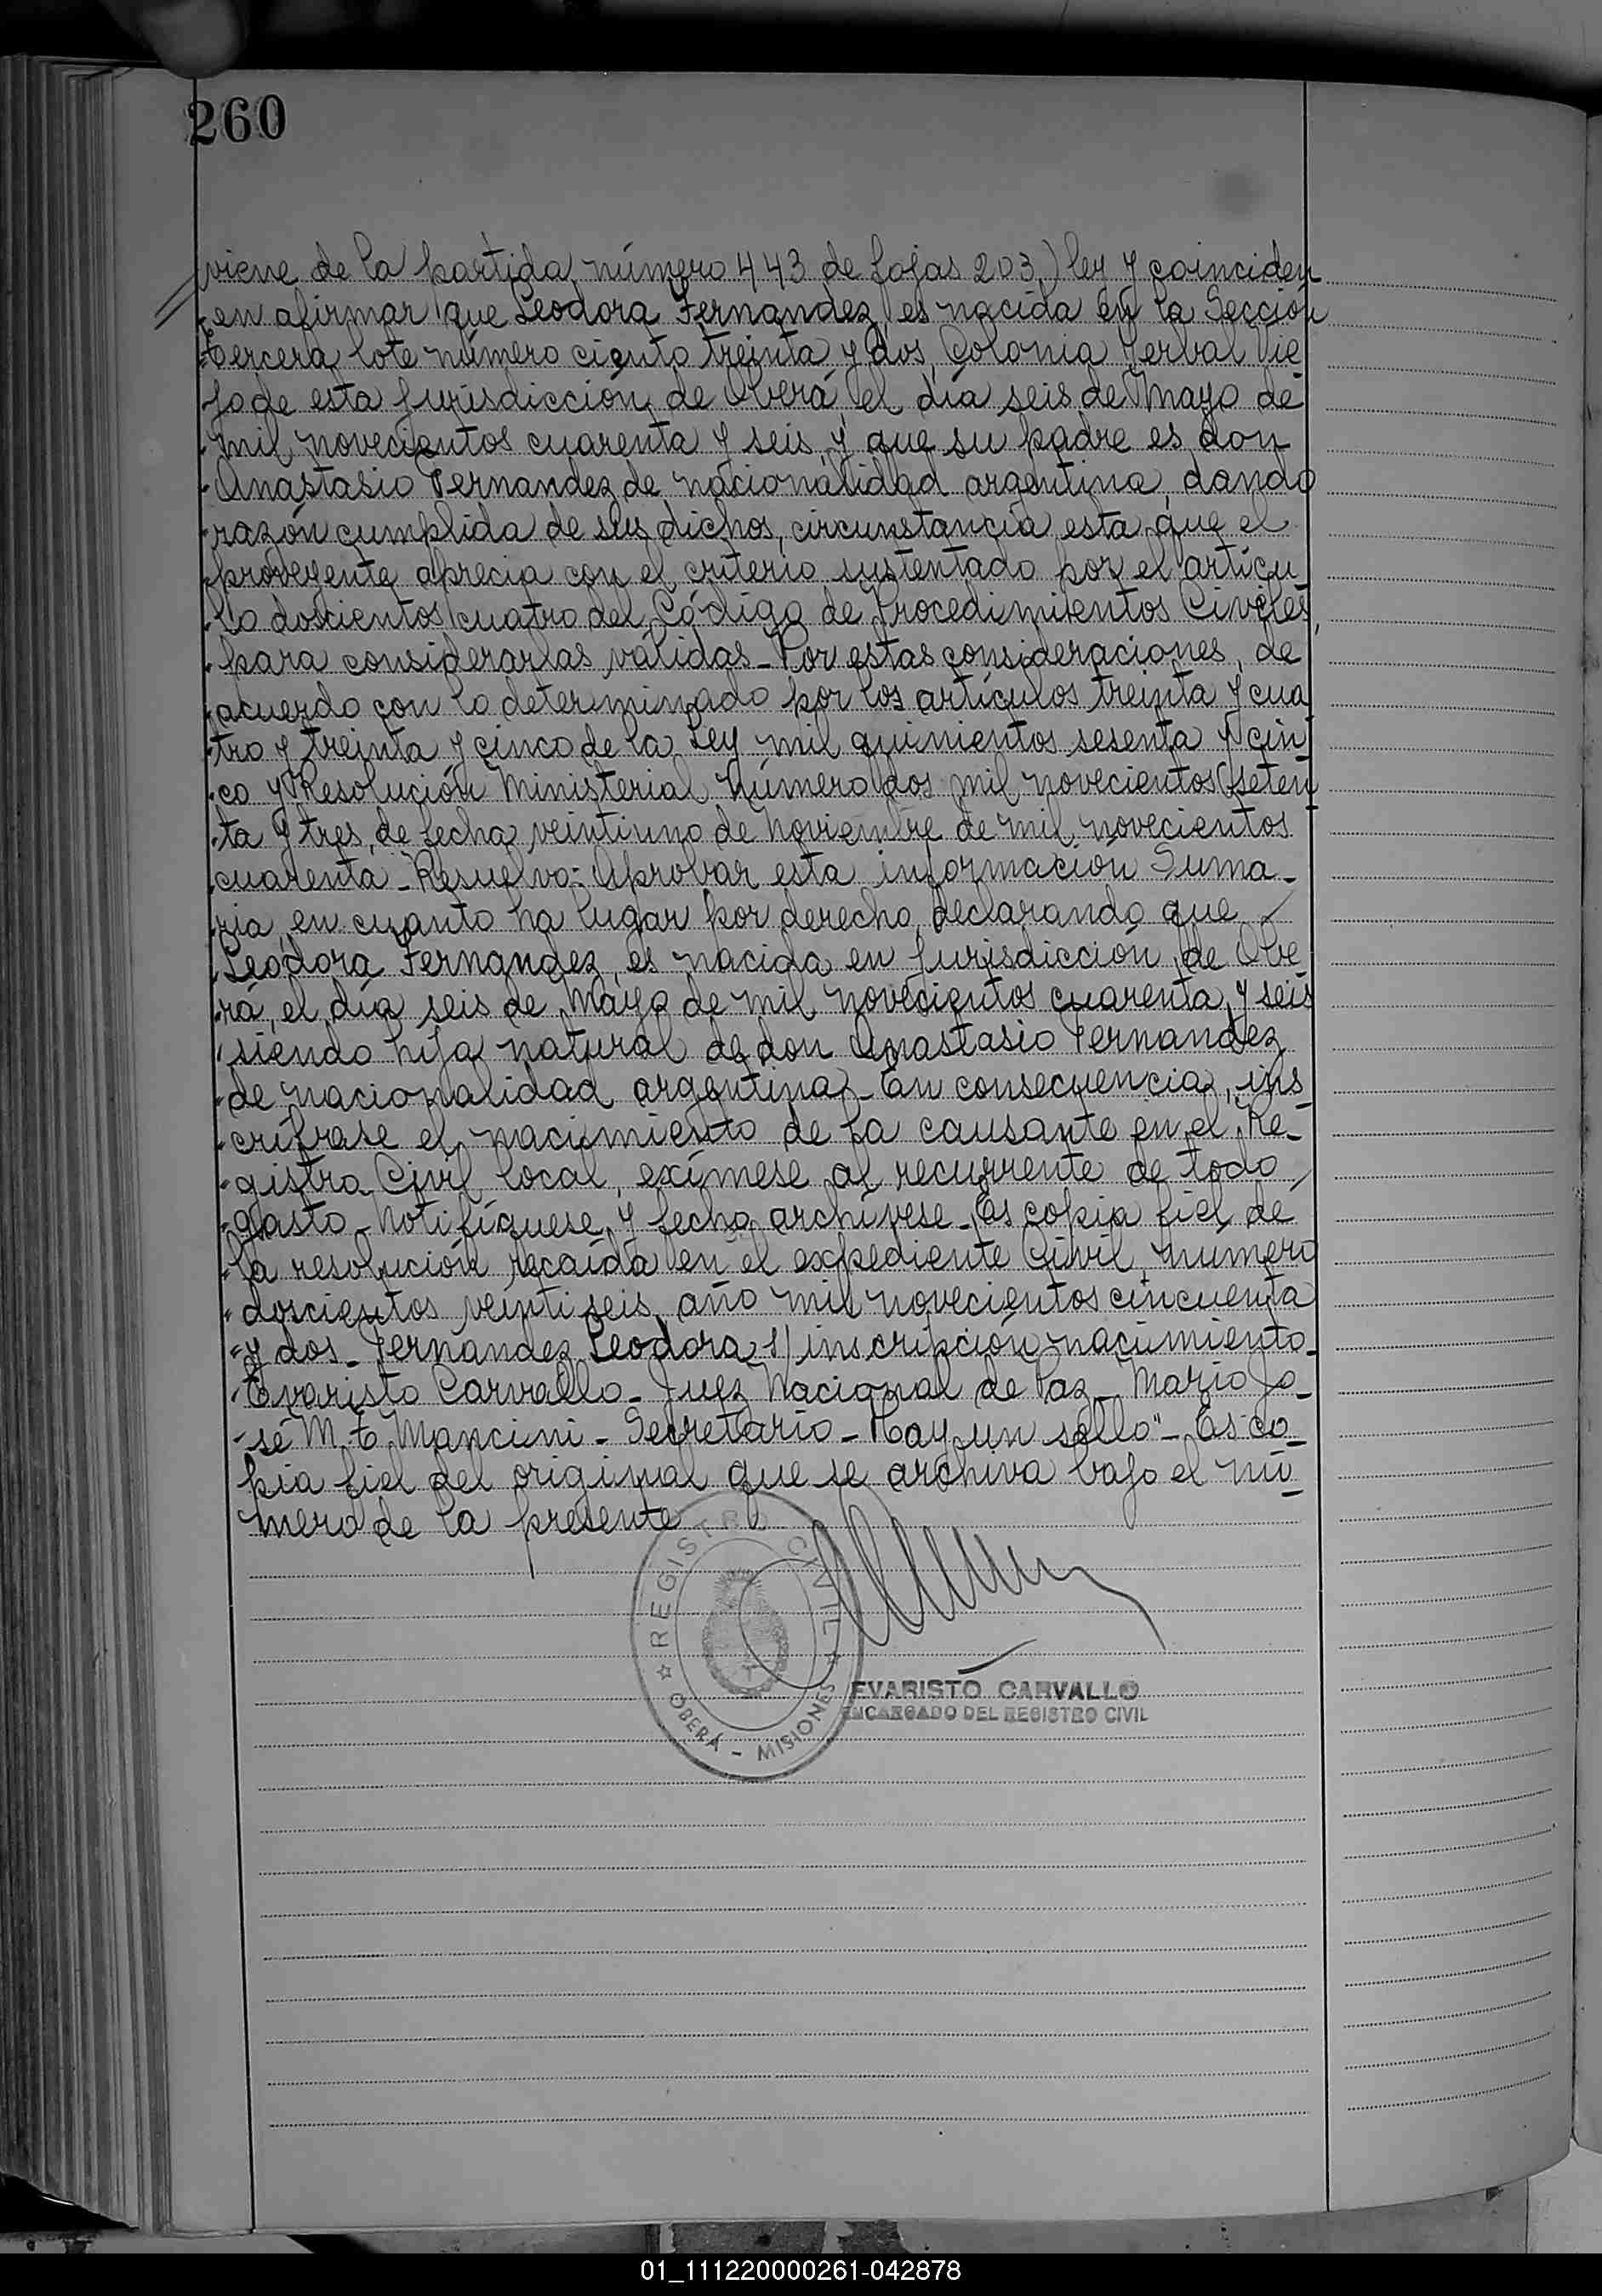 260
viene de la partida número 443 de fojas 203) ley y coinciden
en afirmar que Leodora Fernandez, es nacida en la Sección
tercera lote número ciento treinta y dos, Colonia Yerbal Vie
jo de esta jurisdicción de Oberá, el día seis de Mayo de
mil novecientos cuarenta y seis, y que su padre es don
Anastasio Fernandez de nacionalidad argentina, dando
razón cumplida de sus dichos, circunstancia esta que el
proveyente aprecia con el criterio sustentado por el artícu_
lo doscientos cuatro del Código de Procedimientos Civiles,
para considerarlas válidas_ Por estas consideraciones, de
acuerdo con lo determinado por los artículos treinta y cua
tro y treinta y cinco de la Ley mil quinientos sesenta y cin
co y Resolución Ministerial Número dos mil novecientos seten
ta y tres, de fecha veintiuno de Noviembre de mil novecientos
cuarenta_ Resuelvo: Aprobar esta información Suma_
ria, en cuanto ha lugar por derecho, declarando que
Leodora Fernandez, es nacida en jurisdicción de Obe_
rá, el día seis de Mayo de mil novecientos cuarenta y seis
siendo hija natural de don Anastasio Fernandez
de nacionalidad argentina_ En consecuencia, ins
críbase el nacimiento de la causante en el Re_
gistro Civil local, exímese al recurrente de todo
gasto_ Notifíquese y fecho archívese_ Es copia fiel de
la resolución recaída en el expediente Civil número
doscientos veintiseis, año mil novecientos cincuenta
y dos_ Fernandez Leodora s/ inscripción nacimiento_
Evaristo Carvallo_ Juez Nacional de Paz_ Mario Jo_
sé M. E. Mancini_ Secretario_ Hay un sello"_ Es co_
pia fiel del original que se archiva bajo el nú_
mero de la presente
REGISTRO CIVIL
OBERÁ - MISIONES
EVARISTO CARVALLO
ENCARGADO DEL REGISTRO CIVIL
01_111220000261-042878